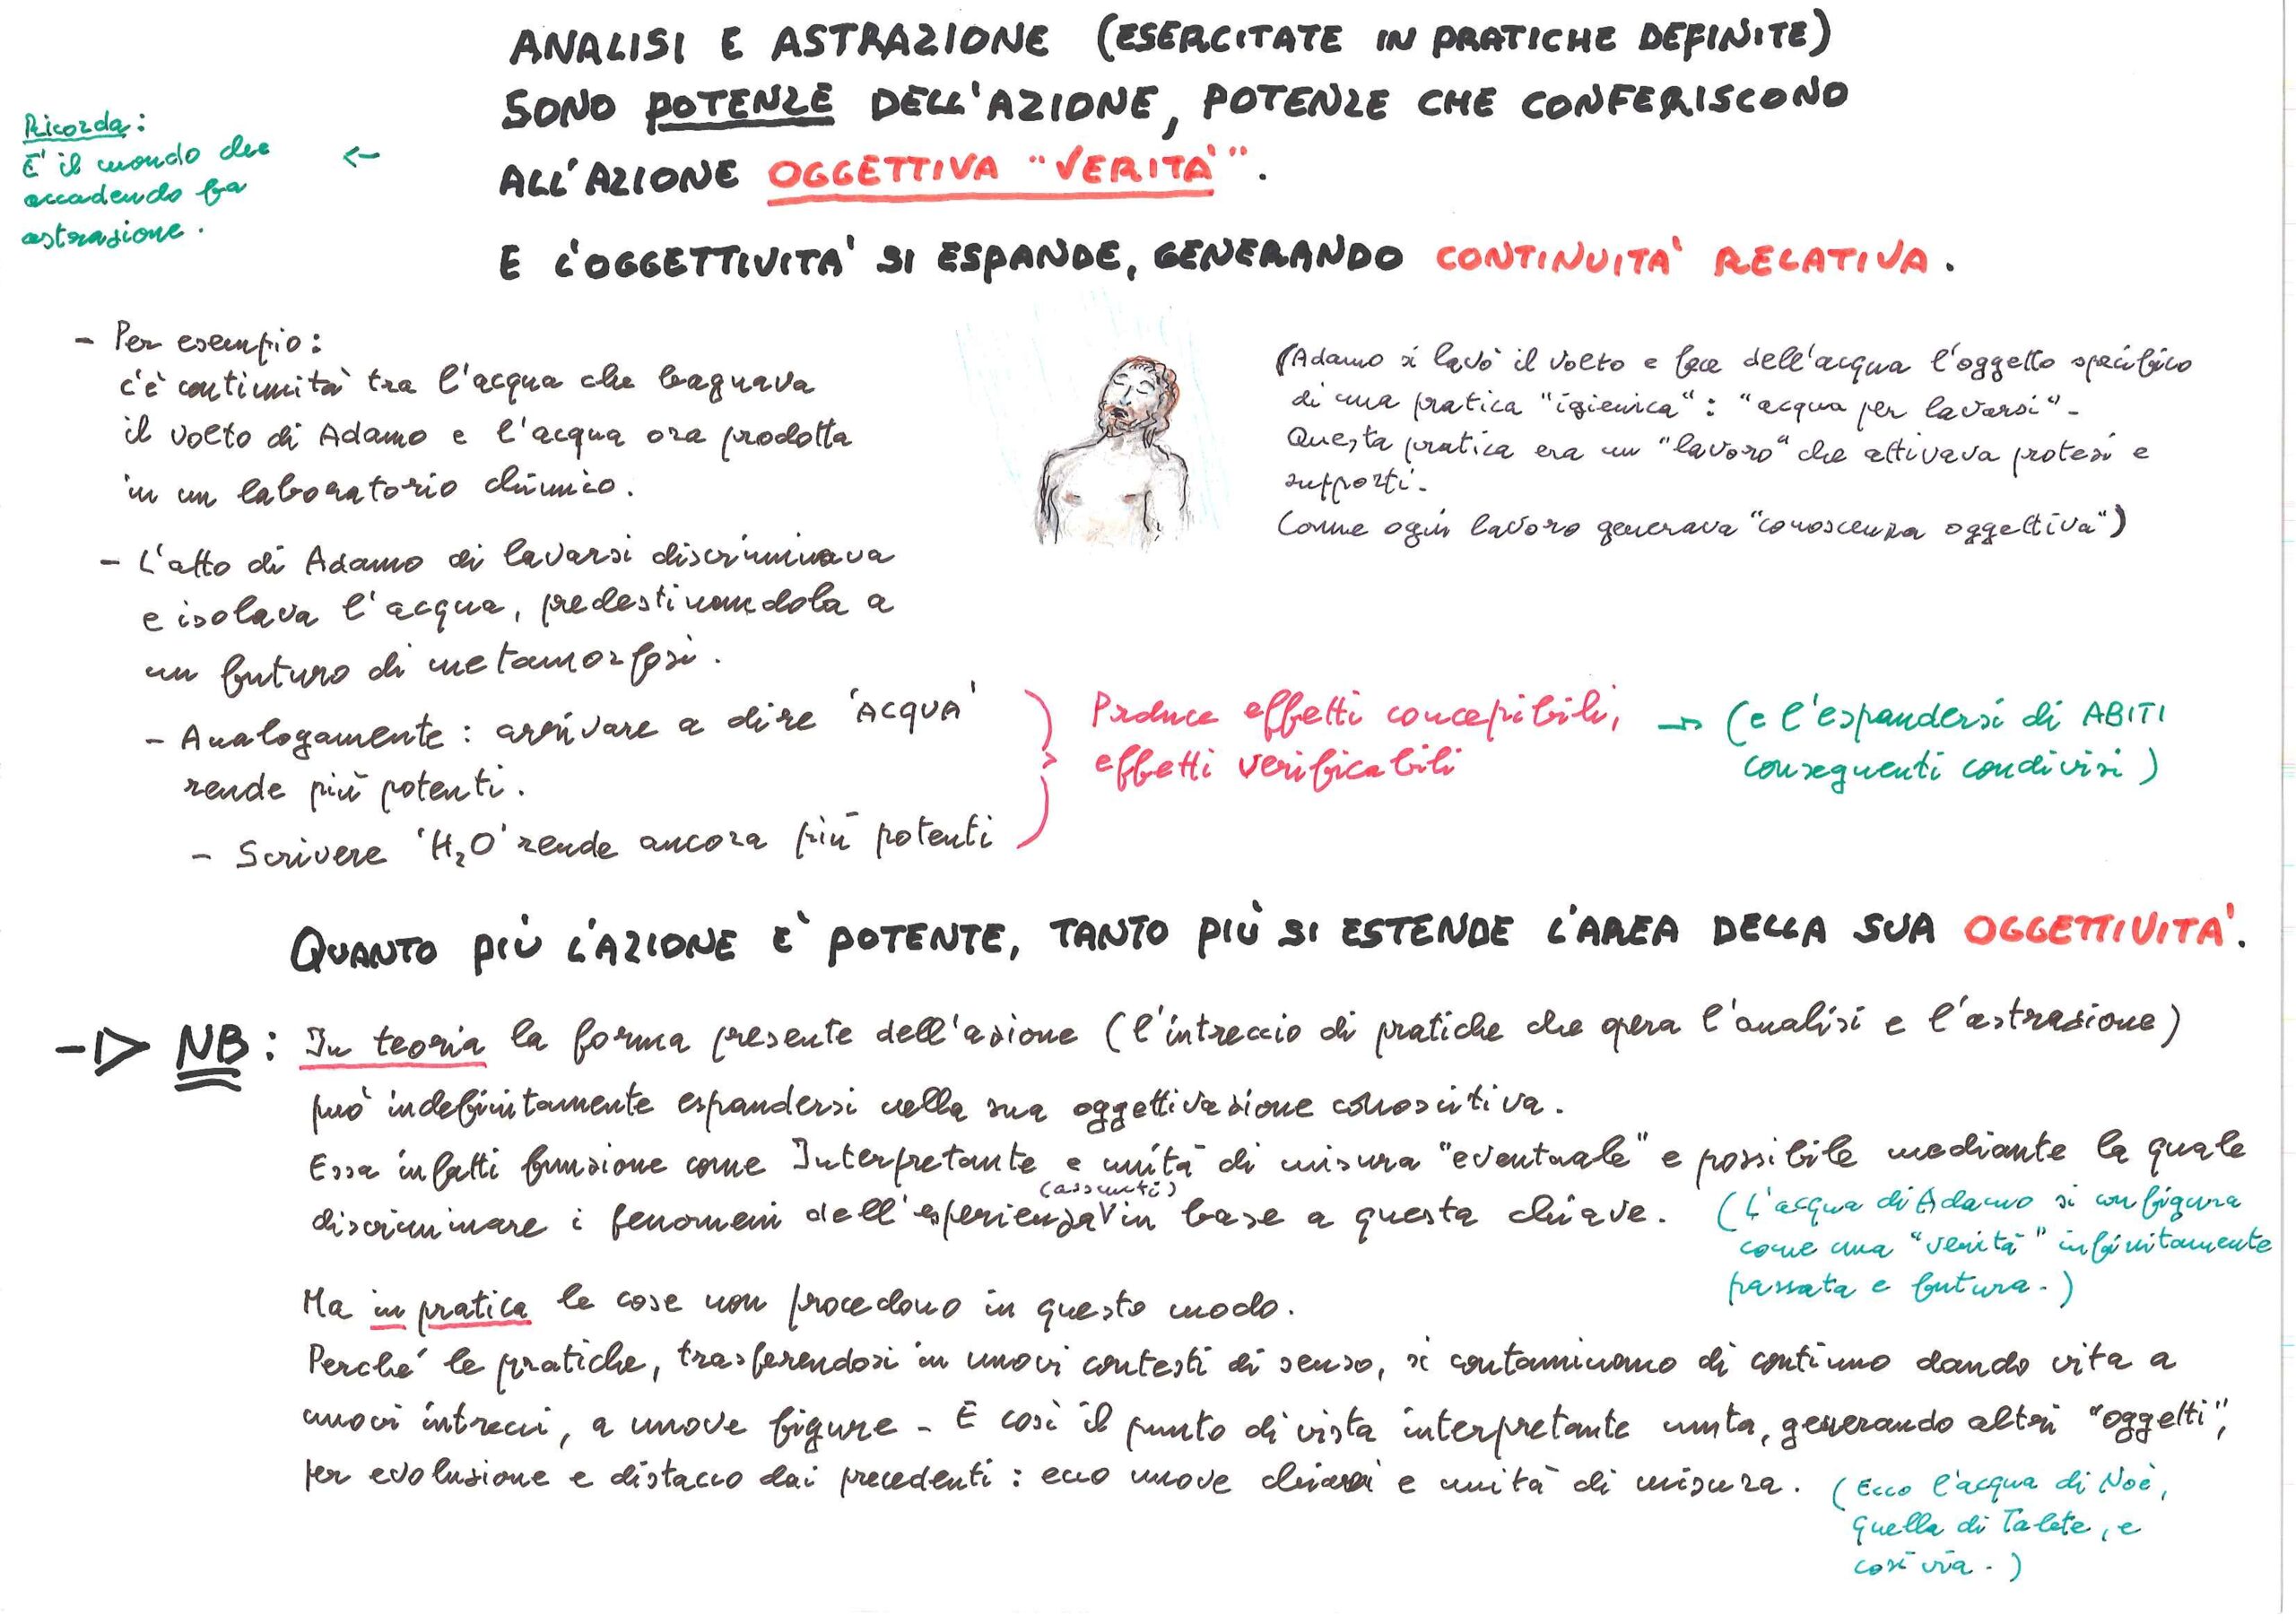 ANALISI E ASTRAZIONE (ESERCITATE IN PRATICHE DEFINITE)
SONO POTENZE DELL'AZIONE, POTENZE CHE CONFERISCONO
ALL'AZIONE OGGETTIVA "VERITÀ".
Ricorda:
È il mondo che
accadendo fa
astrazione.
←
E L'OGGETTIVITÀ SI ESPANDE, GENERANDO CONTINUITÀ RELATIVA.
- Per esempio:
c'è continuità tra l'acqua che bagnava
il volto di Adamo e l'acqua ora prodotta
in un laboratorio chimico.
(Adamo si lavò il volto e fece dell'acqua l'oggetto specifico
di una pratica "igienica": "acqua per lavarsi".
Questa pratica era un "lavoro" che attivava protesi e
supporti.
Come ogni lavoro generava "conoscenza oggettiva")
- L'atto di Adamo di lavarsi discriminava
e isolava l'acqua, predestinandola a
un futuro di metamorfosi.
- Analogamente: arrivare a dire 'ACQUA'
rende più potenti.
- Scrivere 'H₂O' rende ancora più potenti
Produce effetti concepibili,
effetti verificabili
→ (e l'espandersi di ABITI
conseguenti condivisi)
QUANTO PIÙ L'AZIONE È POTENTE, TANTO PIÙ SI ESTENDE L'AREA DELLA SUA OGGETTIVITÀ.
→ NB: In teoria la forma presente dell'azione (l'intreccio di pratiche che opera l'analisi e l'astrazione)
può indefinitamente espandersi nella sua oggettivazione conoscitiva.
Essa infatti funzione come Interpretante e unità di misura "eventuale" e possibile mediante la quale
(assunti)
discriminare i fenomeni dell'esperienza in base a questa chiave.
(L'acqua di Adamo si configura
come una "verità" infinitamente
passata e futura.)
Ma in pratica le cose non procedono in questo modo.
Perché le pratiche, trasferendosi in nuovi contesti di senso, si contaminano di continuo dando vita a
nuovi intrecci, a nuove figure. E così il punto di vista interpretante muta, generando altri "oggetti",
per evoluzione e distacco dai precedenti: ecco nuove chiavi e unità di misura.
(Ecco l'acqua di Noè,
quella di Talete, e
così via.)